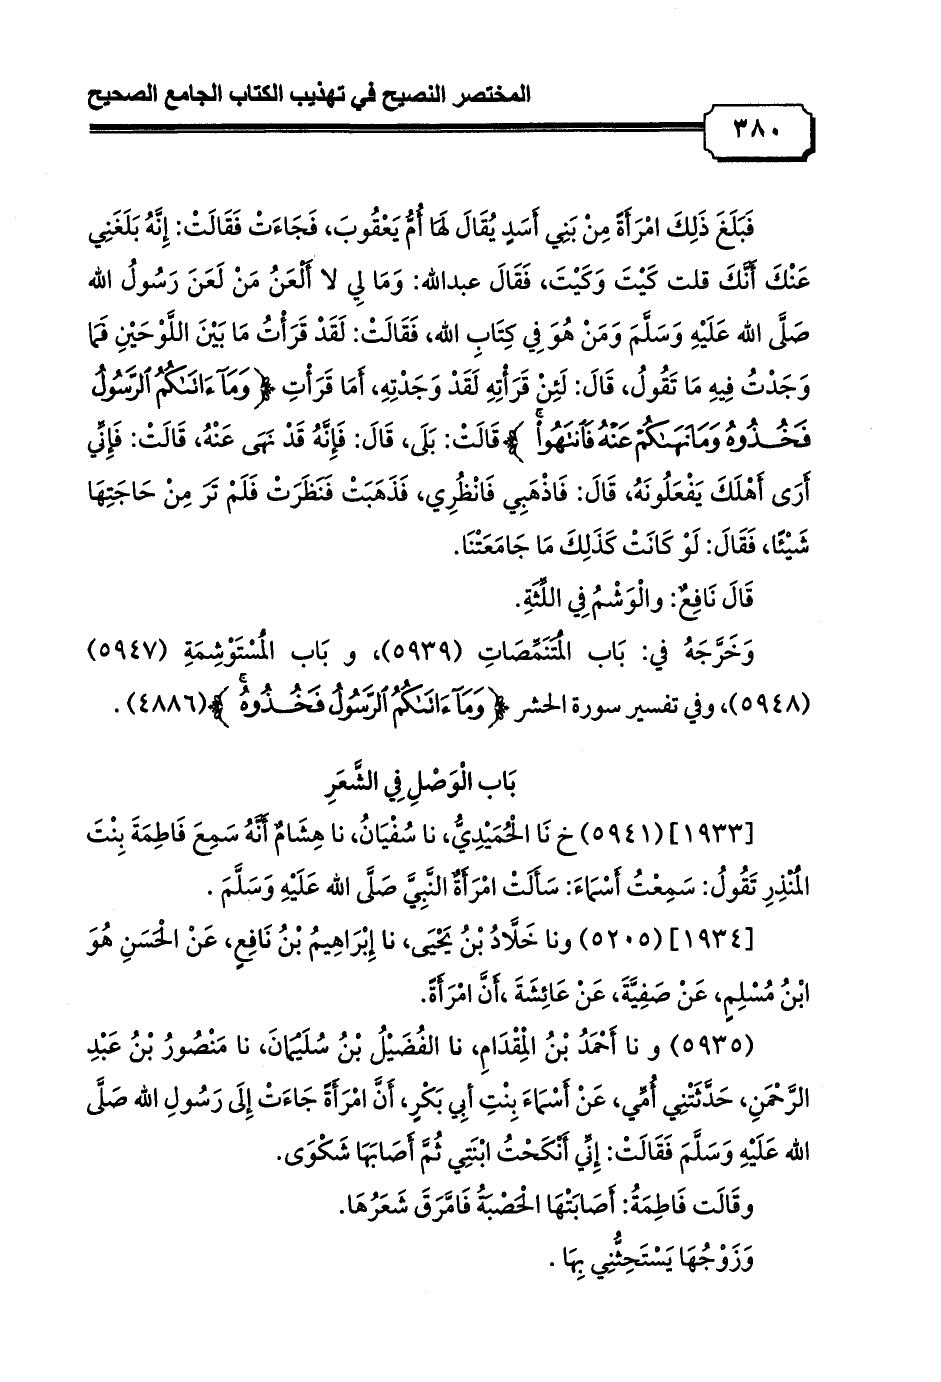 المختصر النصيح في تهذيب الكتاب الجامع الصحيح
٣٨٠
فَبَلَغَ ذَلِكَ امْرَأَةً مِنْ بَنِي أَسَدٍ يُقَالُ لَهَا أُمُّ يَعْقُوبَ، فَجَاءَتْ فَقَالَتْ: إِنَّهُ بَلَغَنِي
عَنْكَ أَنَّكَ قلت كَيْتَ وَكَيْتَ، فَقَالَ عبدالله: وَمَا لِي لا أَلْعَنُ مَنْ لَعَنَ رَسُولُ الله
صَلَّى الله عَلَيْهِ وَسَلَّمَ وَمَنْ هُوَ فِي كِتَابِ الله، فَقَالَتْ: لَقَدْ قَرَأْتُ مَا بَيْنَ اللَّوْحَيْنِ فَمَا
وَجَدْتُ فِيهِ مَا تَقُولُ، قَالَ: لَئِنْ قَرَأْتِهِ لَقَدْ وَجَدْتِهِ، أَمَا قَرَأْتِ ﴿وَمَآ ءَاتَىٰكُمُ ٱلرَّسُولُ
فَخُـذُوهُ وَمَا نَهَىٰكُمْ عَنْهُ فَٱنتَهُوا۟ۚ﴾ قَالَتْ: بَلَى، قَالَ: فَإِنَّهُ قَدْ نَهَى عَنْهُ، قَالَتْ: فَإِنِّي
أَرَى أَهْلَكَ يَفْعَلُونَهُ، قَالَ: فَاذْهَبِي فَانْظُرِي، فَذَهَبَتْ فَنَظَرَتْ فَلَمْ تَرَ مِنْ حَاجَتِهَا
شَيْئًا، فَقَالَ: لَوْ كَانَتْ كَذَلِكَ مَا جَامَعَتْنَا.
قَالَ نَافِعٌ: والْوَشْمُ فِي اللِّثَةِ.
وَخَرَّجَهُ في: بَاب الْمُتَنَمِّصَاتِ (٥٩٣٩)، و بَاب الْمُسْتَوْشِمَةِ (٥٩٤٧)
(٥٩٤٨)، وفي تفسير سورة الحشر ﴿وَمَآ ءَاتَىٰكُمُ ٱلرَّسُولُ فَخُـذُوهُ ۚ﴾ (٤٨٨٦).
بَاب الْوَصْلِ فِي الشَّعَرِ
[١٩٣٣] (٥٩٤١) خ نَا الْحُمَيْدِيُّ، نا سُفْيَانُ، نا هِشَامٌ أَنَّهُ سَمِعَ فَاطِمَةَ بِنْتَ
الْمُنْذِرِ تَقُولُ: سَمِعْتُ أَسْمَاءَ: سَأَلَتْ امْرَأَةٌ النَّبِيَّ صَلَّى الله عَلَيْهِ وَسَلَّمَ .
[١٩٣٤] (٥٢٠٥) ونا خَلَّادُ بْنُ يَحْيَى، نا إِبْرَاهِيمُ بْنُ نَافِعٍ، عَنْ الْحَسَنِ هُوَ
ابْنُ مُسْلِمٍ، عَنْ صَفِيَّةَ، عَنْ عَائِشَةَ ،أَنَّ امْرَأَةً.
(٥٩٣٥) و نا أَحْمَدُ بْنُ الْمِقْدَامِ، نا الْفُضَيْلُ بْنُ سُلَيْمَانَ، نا مَنْصُورُ بْنُ عَبْدِ
الرَّحْمَنِ، حَدَّثَتْنِي أُمِّي، عَنْ أَسْمَاءَ بِنْتِ أبِي بَكْرٍ، أَنَّ امْرَأَةً جَاءَتْ إِلَى رَسُولِ الله صَلَّى
الله عَلَيْهِ وَسَلَّمَ فَقَالَتْ: إِنِّي أَنْكَحْتُ ابْنَتِي ثُمَّ أَصَابَهَا شَكْوَى.
وقَالَت فَاطِمَةُ: أَصَابَتْهَا الْحَصْبَةُ فَامَّرَقَ شَعَرُهَا.
وَزَوْجُهَا يَسْتَحِثُّنِي بِهَا .